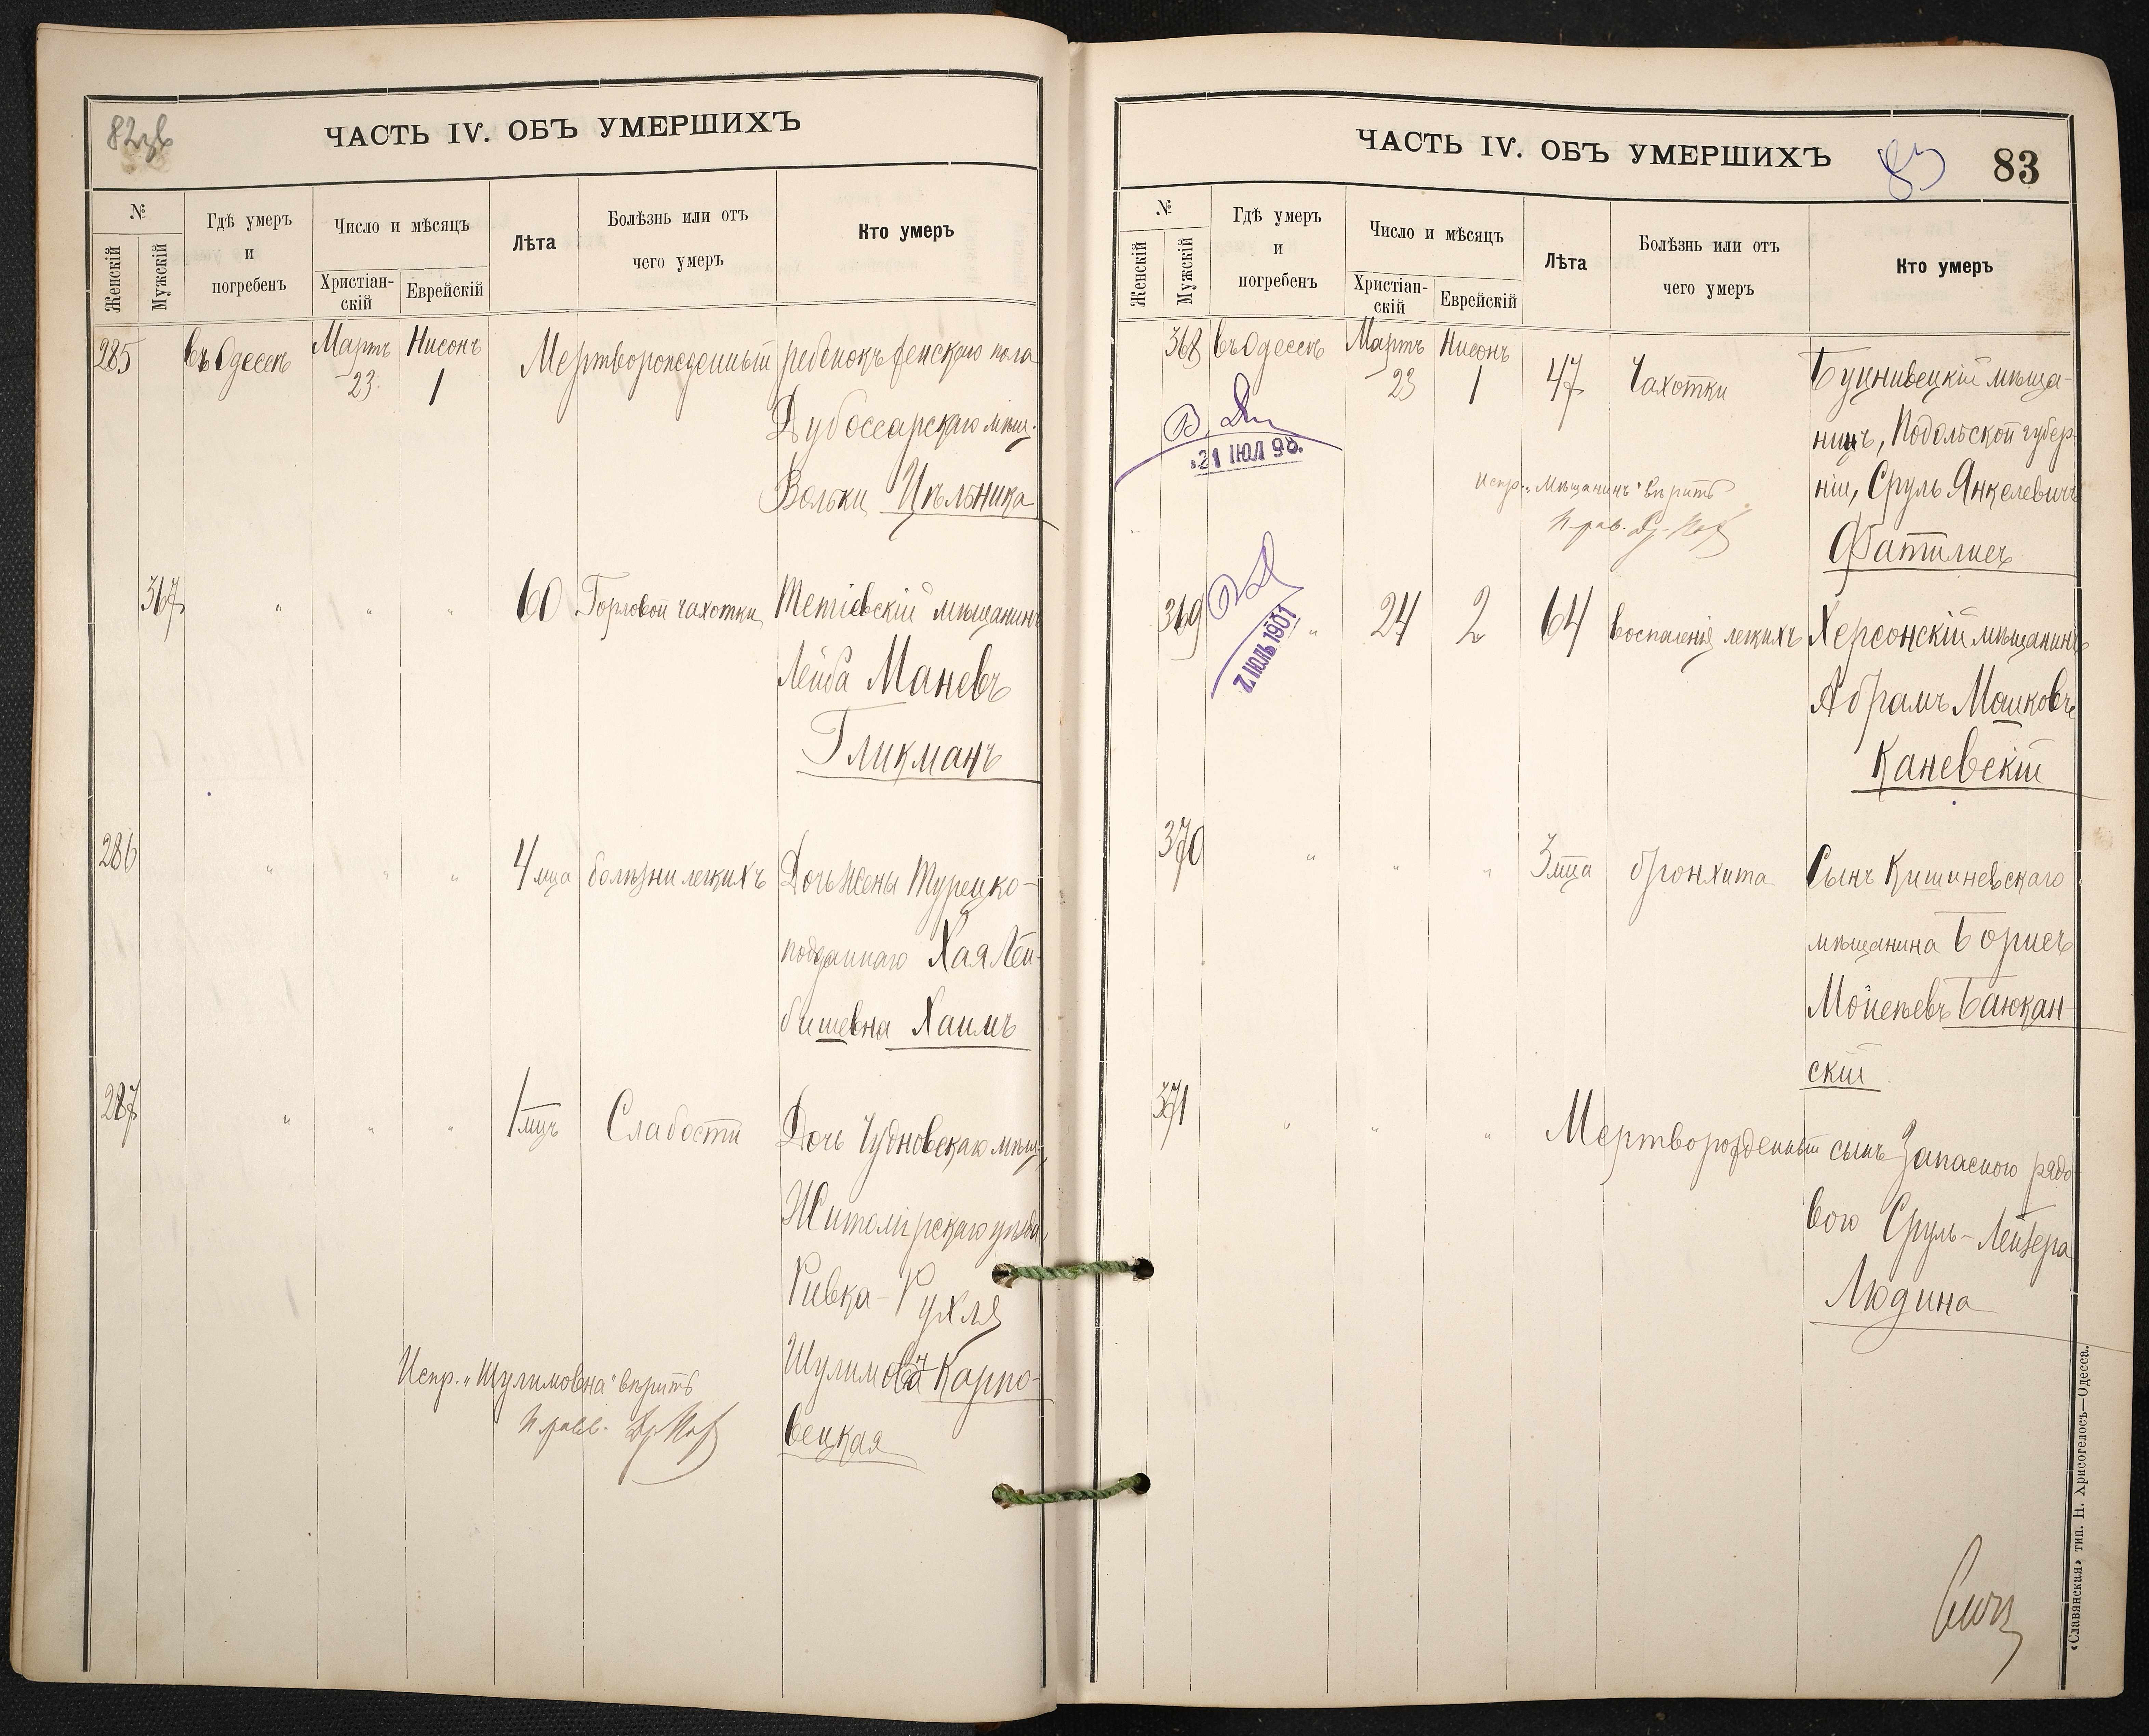 82 зв
ЧАСТЬ IV. ОБЪ УМЕРШИХЪ
№
Женскій
Мужскій
Гдѣ умеръ
и
погребенъ
Число и мѣсяцъ
Христіан-
скій
Еврейскій
Лѣта
Болѣзнь или отъ
чего умеръ
Кто умеръ
285 въ Одессѣ Мартъ 23 Нисонъ 1 Мертворожденный ребенокъ женскаго пола
Дубоссарскаго мѣщ.
Вольки Цѣльника
367 " " " 60 Горловой чахотки Тетіевскій мѣщанинъ
Лейба Маневъ
Гликманъ
286 " " " 4 мца болѣзни легкихъ Дочь жены Турецко-
подданнаго Хая Лей-
бишевна Хаимъ
287 " " " 1 мцъ Слабости Дочь Чудновскаго мѣщ.,
Житомірскаго уѣзда,
Ривка-Рухля
Шулимовна Карпо-
вецкая
Испр. "Шулимовна" вѣрить
ЧАСТЬ IV. ОБЪ УМЕРШИХЪ
83
83
№
Женскій
Мужскій
Гдѣ умеръ
и
погребенъ
Число и мѣсяцъ
Христіан-
скій
Еврейскій
Лѣта
Болѣзнь или отъ
чего умеръ
Кто умеръ
368 въ Одессѣ Мартъ 23 Нисонъ 1 47 Чахотки Буцнивецкій мѣща-
нинъ, Подольской губер-
ніи, Сруль Янкелевичъ
Фатилис
21 ІЮЛ 98.
испр. "Мѣщанинъ" вѣрить
369 " 24 2 64 воспаленія легкихъ Херсонскій мѣщанинъ
Абрамъ Машковъ
Каневскій
7. ІЮЛЬ 1901
370 " " " 3 мца бронхита Сынъ Кишиневскаго
мѣщанина Борисъ
Мойсѣевъ Баюкан-
скій
371 " " " Мертворожденный сынъ Запасного рядо-
вого Сруль-Лейзера
Людина
«Славянская» тип. Н. Хрисогелосъ—Одесса.